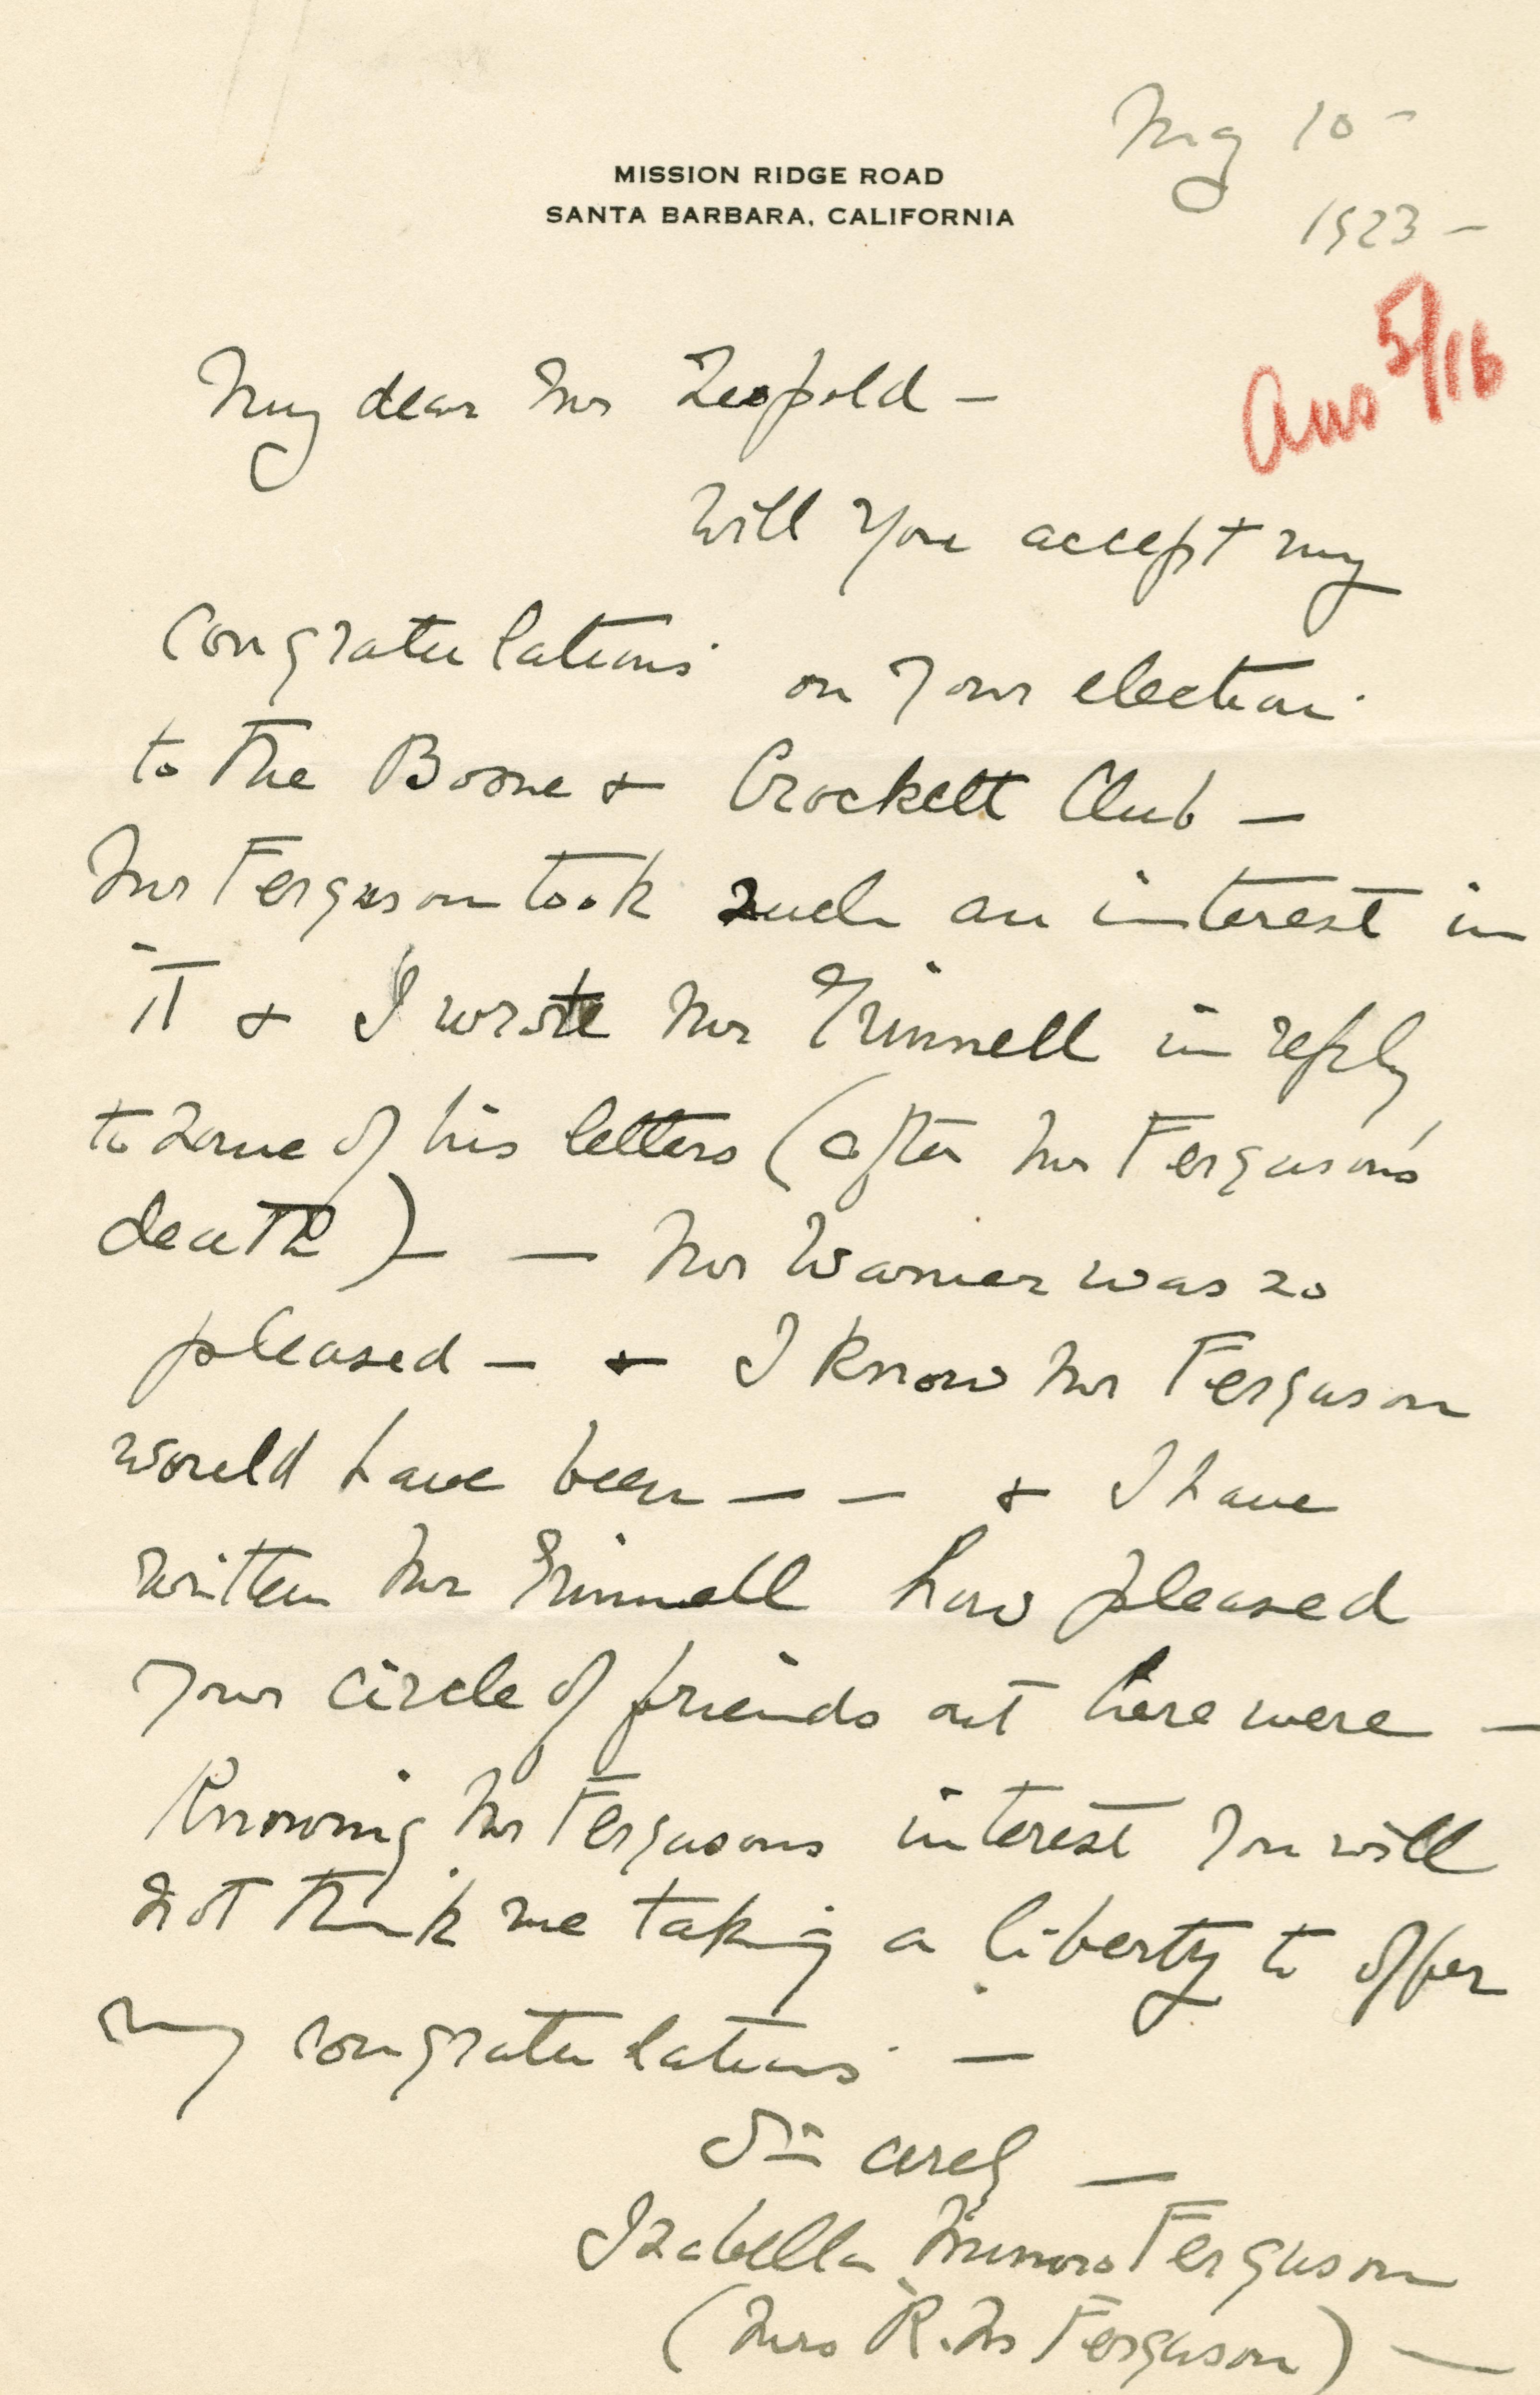 May 10 -
MISSION RIDGE ROAD
SANTA BARBARA, CALIFORNIA
1923 -
Ans 5/16
My dear Mr Leopold -
Will you accept my
congratulations on your election
to the Boone & Crockett Club -
Mr Ferguson took such an interest in
it & I wrote Mr Grinnell in reply
to some of his letters (after Mr Ferguson's
death) - - Mr Warner was so
pleased - & I know Mr Ferguson
would have been - - & I have
written Mr Grinnell how pleased
your circle of friends out here were -
Knowing Mr Fergusons interest you will
not think me taking a liberty to offer
my congratulations -
Sincerely -
Isabella Munro Ferguson
(Mrs R. M Ferguson) -